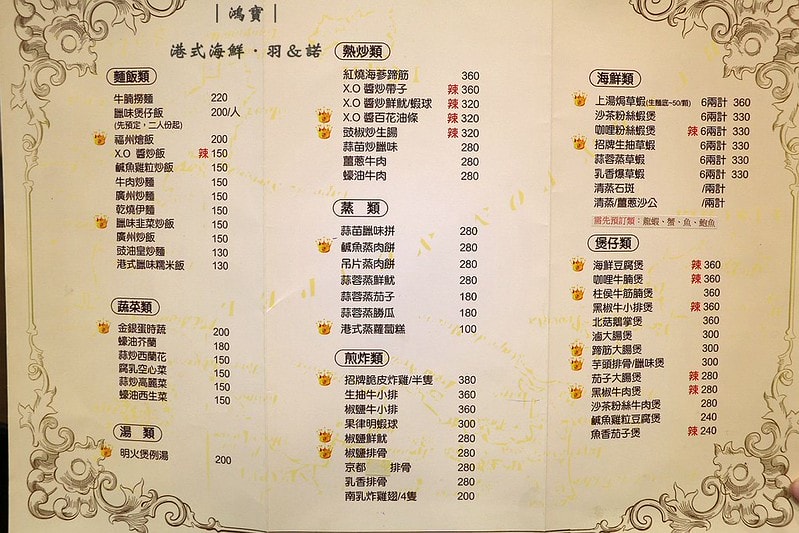 ｜鴻寶｜
港式海鮮・羽&諾
麵飯類
牛腩撈麵 220
臘味煲仔飯 200/人
(先預定，二人份起)
福州燴飯 200
X.O 醬炒飯 辣 150
鹹魚雞粒炒飯 150
牛肉炒麵 150
廣州炒麵 150
乾燒伊麵 150
臘味韭菜炒飯 150
廣州炒飯 150
豉油皇炒麵 130
港式臘味糯米飯 130
蔬菜類
金銀蛋時蔬 200
蠔油芥蘭 180
蒜炒西蘭花 150
腐乳空心菜 150
蒜炒高麗菜 150
蠔油西生菜 150
湯 類
明火煲例湯 200
熱炒類
紅燒海蔘蹄筋 360
X.O 醬炒帶子 辣 360
X.O 醬炒鮮魷/蝦球 辣 320
X.O 醬百花油條 辣 320
豉椒炒生腸 辣 320
蒜苗炒臘味 280
薑蔥牛肉 280
蠔油牛肉 280
蒸 類
蒜苗臘味拼 280
鹹魚蒸肉餅 280
吊片蒸肉餅 280
蒜蓉蒸鮮魷 280
蒜蓉蒸茄子 180
蒜蓉蒸勝瓜 180
港式蒸蘿蔔糕 100
煎炸類
招牌脆皮炸雞/半隻 380
生抽牛小排 360
椒鹽牛小排 360
果律明蝦球 300
椒鹽鮮魷 280
椒鹽排骨 280
京都 排骨 280
乳香排骨 280
南乳炸雞翅/4隻 200
海鮮類
上湯焗草蝦(生麵底~50/顆) 6兩計 360
沙茶粉絲蝦煲 6兩計 330
咖哩粉絲蝦煲 辣 6兩計 330
招牌生抽草蝦 6兩計 330
蒜蓉蒸草蝦 6兩計 330
乳香爆草蝦 6兩計 330
清蒸石斑 /兩計
清蒸/薑蔥沙公 /兩計
需先預訂類：龍蝦、蟹、魚、鮑魚
煲仔類
海鮮豆腐煲 辣 360
咖哩牛腩煲 辣 360
柱侯牛筋腩煲 360
黑椒牛小排煲 辣 360
北菇鵝掌煲 360
滷大腸煲 300
蹄筋大腸煲 300
芋頭排骨/臘味煲 300
茄子大腸煲 辣 280
黑椒牛肉煲 辣 280
沙茶粉絲牛肉煲 280
鹹魚雞粒豆腐煲 240
魚香茄子煲 辣 240